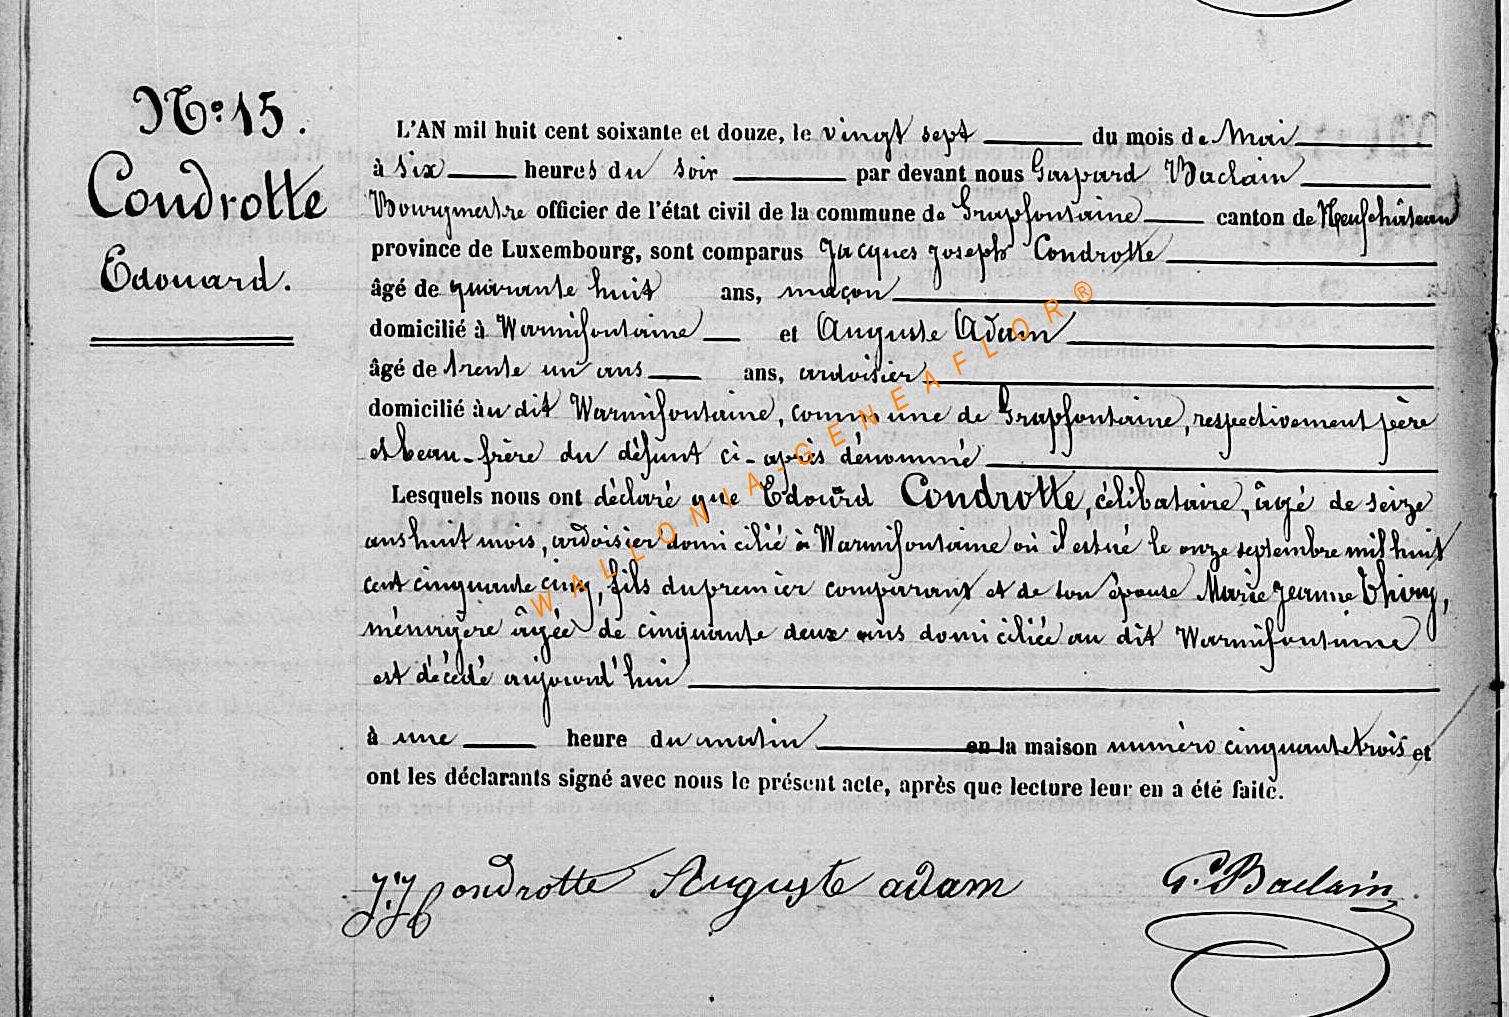 N° 15.
Condrotte
Edouard.
L'AN mil huit cent soixante et douze, le vingt sept du mois de Mai
à six heures du soir par devant nous Gaspard Baclain
Bourgmestre officier de l'état civil de la commune de Grapfontaine canton de Neufchâteau
province de Luxembourg, sont comparus Jacques Joseph Condrotte
âgé de quarante huit ans, maçon
domicilié à Warmifontaine et Auguste Adam
âgé de trente un ans ans, ardoisier
domicilié àu dit Warmifontaine, commune de Grapfontaine, respectivement père
et beau-frère du défunt ci-après dénommé
Lesquels nous ont déclaré que Edouard Condrotte, célibataire, âgé de seize
ans huit mois, ardoisier domicilié à Warmifontaine où il est né le onze septembre mil huit
cent cinquante cinq, fils du premier comparant et de son épouse Marie Jeanne Thiry,
ménagère âgée de cinquante deux ans domiciliée au dit Warmifontaine
est décédé aujourd'hui
à une heure du matin en la maison numéro cinquante trois et
ont les déclarants signé avec nous le présent acte, après que lecture leur en a été faite.
J.J. Condrotte Auguste adam G. Baclain
WALLONIA-GENEAFLOR®